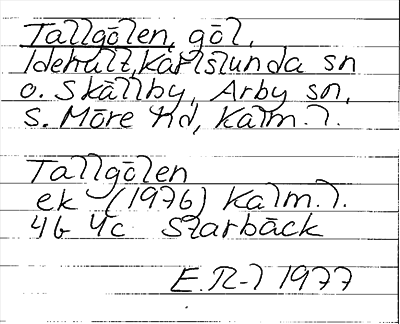 Tallgölen, göl,
Idehult, Karlslunda sn
o. Skällby, Arby sn,
S. Möre hd, Kalm. l.
Tallgölen
ek (1976) Kalm. l.
4G 4c Starbäck
E.R-l 1977